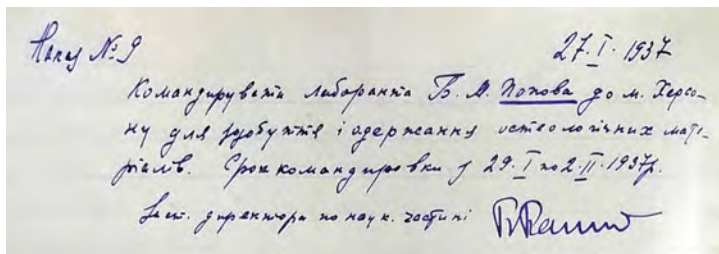 Наказ № 9 27.I.1937
Командирувати лаборанта Б. М. Попова до м. Херсо-
ну для здобуття і одержання остеологічних мате-
ріалів. Срок командировки з 29.I по 2.II.1937р.
Заст. директора по наук. частині